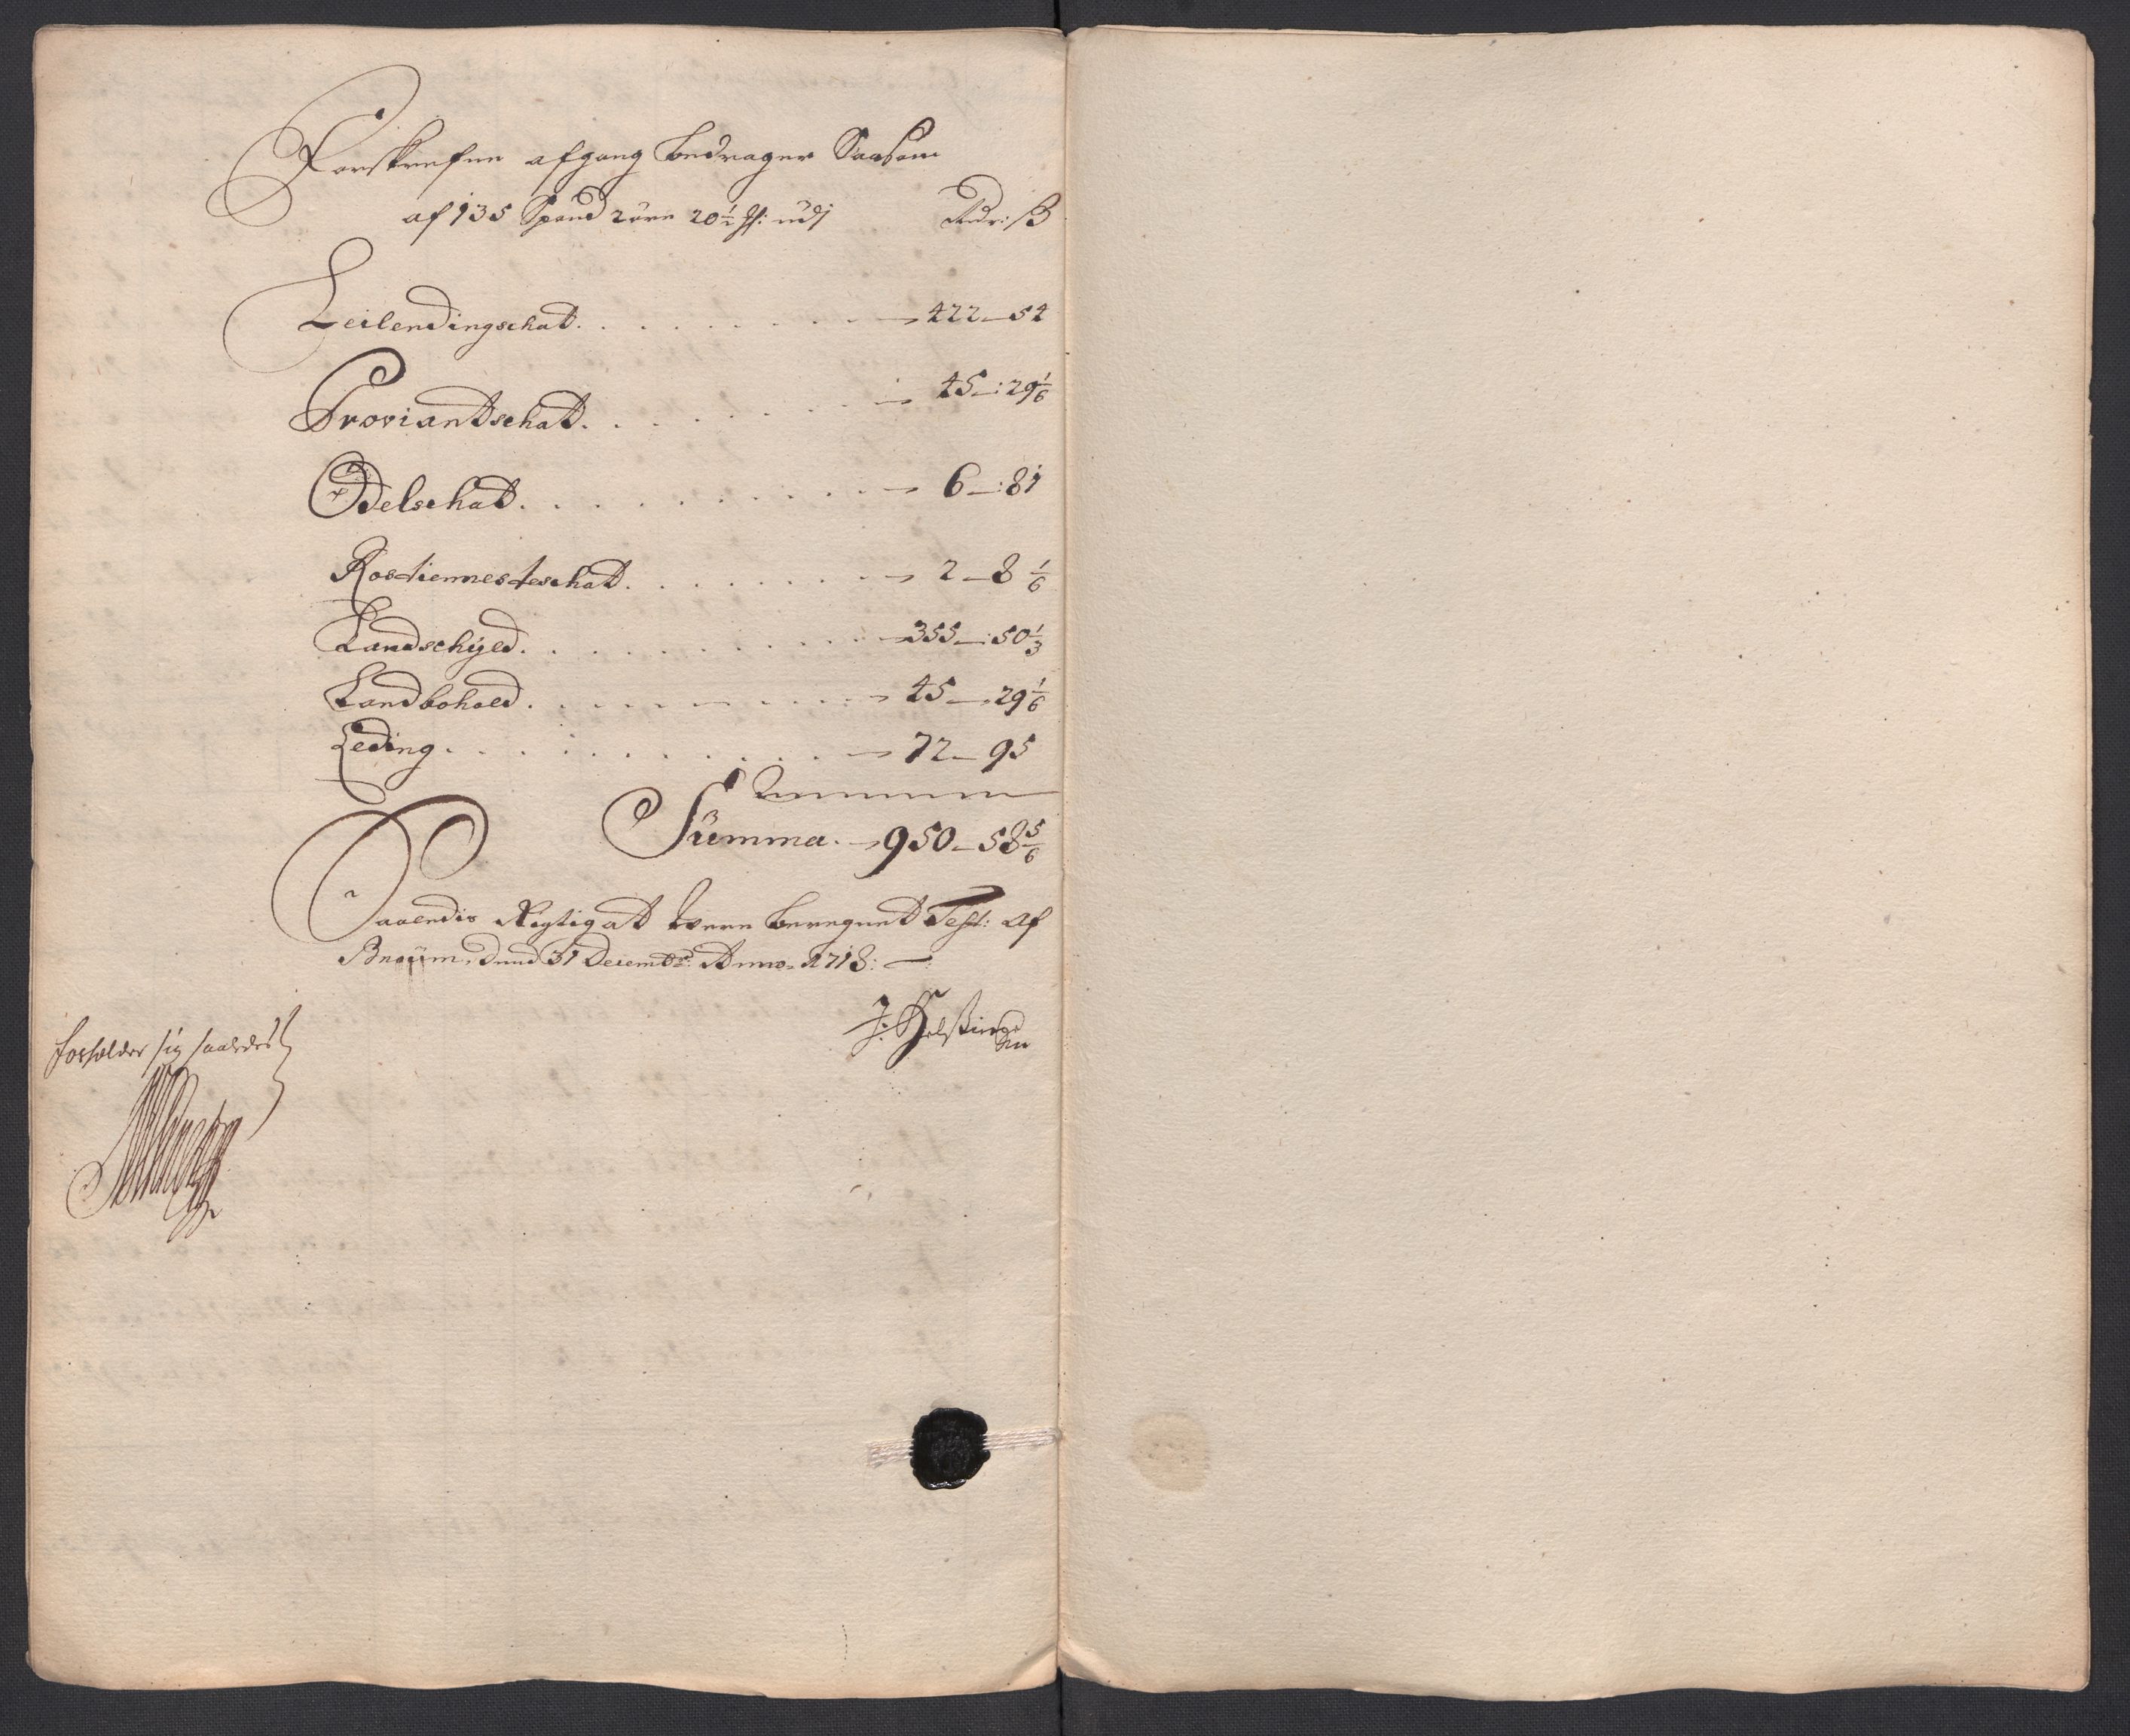 Forskrefne afgang bedrager Saasom
af 135 Spand 2 øre 20½ ₰: udj Rdr: ß
Leilendingschat. . . . . . . . . 422 – 54
Proviantschat. . . . . . . . 45 –: 29⅙
Odelschat. . . . . . . . . . 6 –: 81
Rostiennesteschat. . . . . . . . 2 – 8⅙
Landschyld. . . . . . . . . . 355 –: 50⅓
Landbohold. . . . . . . . . . 45 – 29⅙
Leding. . . . . . . . . . . 72 – 95
Summa. 950 – 58⅚
Saaledis Rigtig at were beregnet Test: af
dend 31 Decembr: Anno 1718:
J: 
forholder sig saaledes